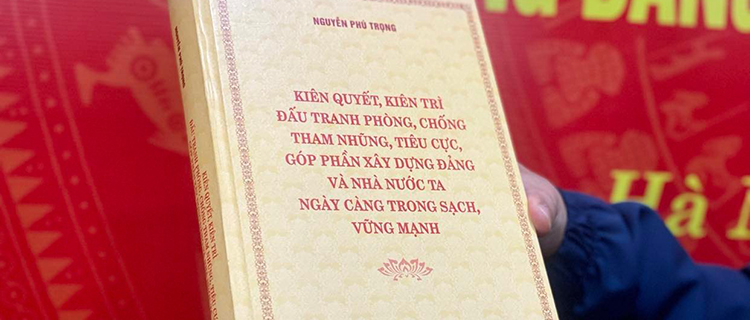 NG ĐẢNG
NGUYỄN PHÚ TRỌNG
KIÊN QUYẾT, KIÊN TRÌ
ĐẤU TRANH PHÒNG, CHỐNG
THAM NHŨNG, TIÊU CỰC,
GÓP PHẦN XÂY DỰNG ĐẢNG
VÀ NHÀ NƯỚC TA
NGÀY CÀNG TRONG SẠCH,
VỮNG MẠNH
Hà
KIÊN QUYẾT, KIÊN TRÌ